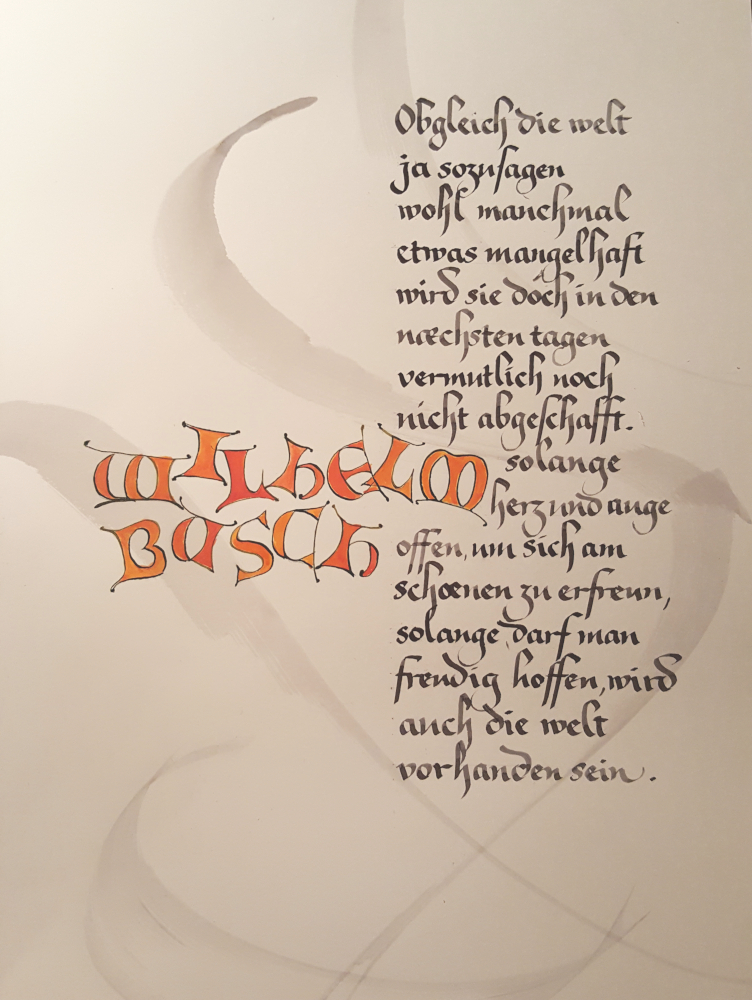 Obgleich die welt
ja sozusagen
wohl manchmal
etwas mangelhaft
wird sie doch in den
næchsten tagen
vermutlich noch
nicht abgeschafft.
solange
herz und auge
offen, um sich am
schœnen zu erfreun,
solange, darf man
freudig hoffen, wird
auch die welt
vorhanden sein.
WILHELM
BUSCH